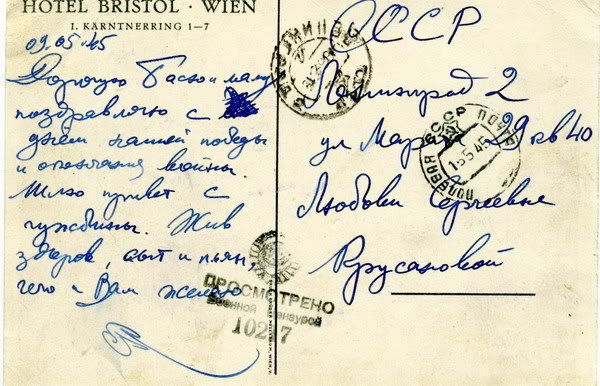 HOTEL BRISTOL · WIEN
I. KÄRNTNERRING 1—7
09.05.45
Дорогую Басю и маму
поздравляю с
днём нашей победы
и окончания войны.
Шлю привет с
чужбины. Жив
здоров, сыт и пьян,
чего и Вам желаю
СССР
Ленинград 2
ул Марата 29 кв 40
Любови Сергеевне
Крусановой
ПОЛЕВАЯ ПОЧТА
СССР
15.5.45
ПРОСМОТРЕНО
Военной Цензурой
10217